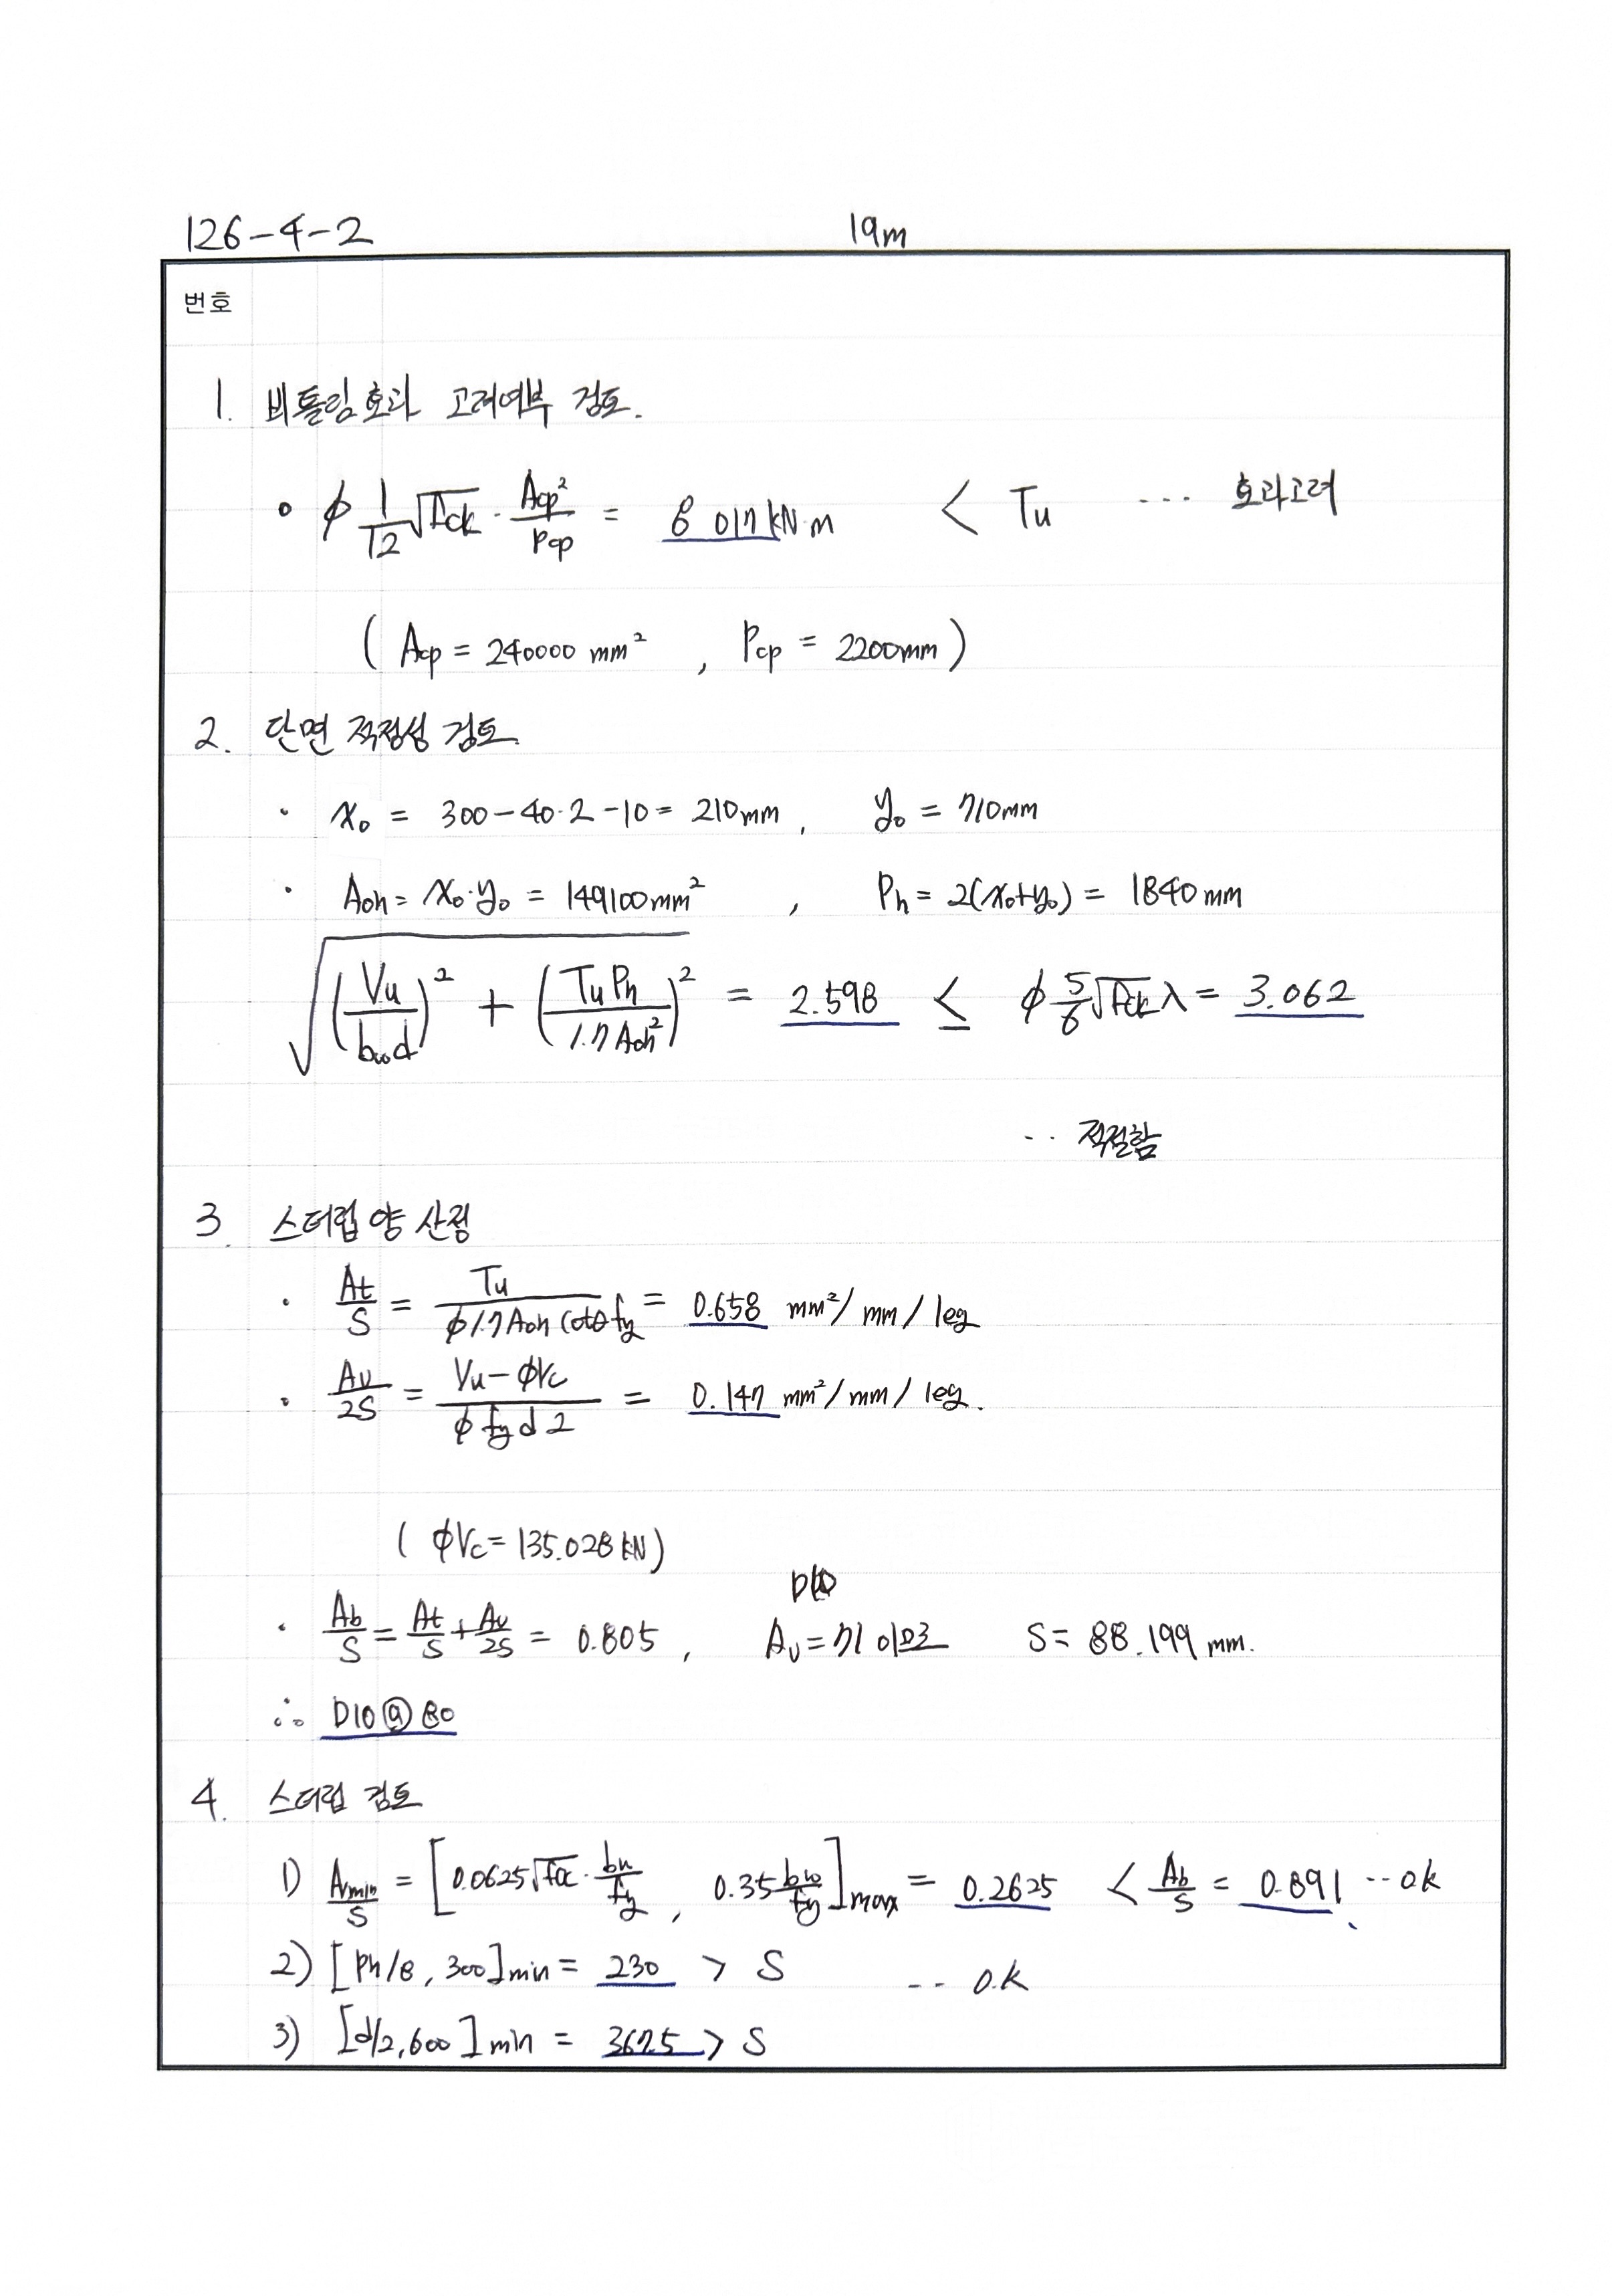 126-4-2 19m
번호
1. 비틀림효과 고려여부 검토.
∘ ϕ 1/12 √fck · Acp²/Pcp = 8.017kN·m < Tu ... 효과고려
( Acp = 240000 mm² , Pcp = 2200mm )
2. 단면 적정성 검토.
· x₀ = 300-40·2-10 = 210mm, y₀ = 710mm
· Aoh = x₀·y₀ = 149100mm² , Ph = 2(x₀+y₀) = 1840mm
√((Vu/bwd)² + (TuPh/1.7Aoh²)²) = 2.598 ≤ ϕ 5/6 √fck λ = 3.062
.. 적절함
3. 스터럽 양 산정
· At/S = Tu/(ϕ1.7Aoh cotθ fy) = 0.658 mm²/mm/leg
· Av/2S = (Vu-ϕVc)/(ϕ fy d 2) = 0.147 mm²/mm/leg.
( ϕVc = 135.028kN)
D10
· Ab/S = At/S + Av/2S = 0.805 , Av = 71 S = 88.199 mm.
∴ D10@80
4. 스터럽 검토
1) Avmin/S = [0.0625√fck · bw/fy , 0.35 bw/fy]max = 0.2625 < Ab/S = 0.891 ··ok
2) [Ph/8, 300]min = 230 > S -- o.k
3) [d/2, 600]min = 367.5 > S